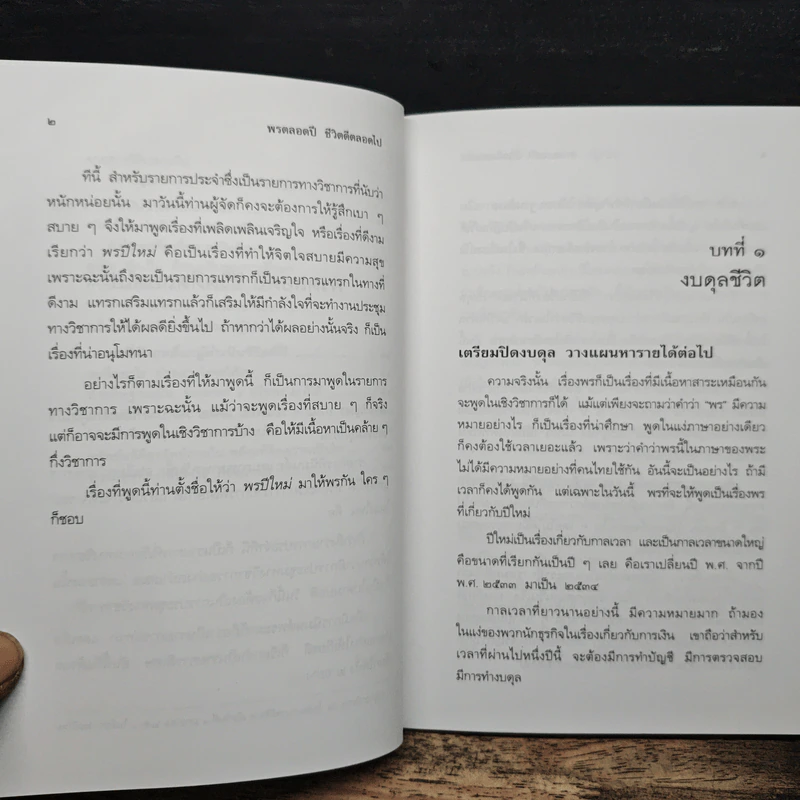 ๒
พรตลอดปี ชีวิตดีตลอดไป
ทีนี้ สำหรับรายการประจำซึ่งเป็นรายการทางวิชาการที่นับว่า
หนักหน่อยนั้น มาวันนี้ท่านผู้จัดก็คงจะต้องการให้รู้สึกเบา ๆ
สบาย ๆ จึงให้มาพูดเรื่องที่เพลิดเพลินเจริญใจ หรือเรื่องที่ดีงาม
เรียกว่า พรปีใหม่ คือเป็นเรื่องที่ทำให้จิตใจสบายมีความสุข
เพราะฉะนั้นถึงจะเป็นรายการแทรกก็เป็นรายการแทรกในทางที่
ดีงาม แทรกเสริมแทรกแล้วก็เสริมให้มีกำลังใจที่จะทำงานประชุม
ทางวิชาการให้ได้ผลดียิ่งขึ้นไป ถ้าหากว่าได้ผลอย่างนั้นจริง ก็เป็น
เรื่องที่น่าอนุโมทนา
อย่างไรก็ตามเรื่องที่ให้มาพูดนี้ ก็เป็นการมาพูดในรายการ
ทางวิชาการ เพราะฉะนั้น แม้ว่าจะพูดเรื่องที่สบาย ๆ ก็จริง
แต่ก็อาจจะมีการพูดในเชิงวิชาการบ้าง คือให้มีเนื้อหาเป็นคล้าย ๆ
กึ่งวิชาการ
เรื่องที่พูดนี้ท่านตั้งชื่อให้ว่า พรปีใหม่ มาให้พรกัน ใคร ๆ
ก็ชอบ
บทที่ ๑
งบดุลชีวิต
เตรียมปิดงบดุล วางแผนหารายได้ต่อไป
ความจริงนั้น เรื่องพรก็เป็นเรื่องที่มีเนื้อหาสาระเหมือนกัน
จะพูดในเชิงวิชาการก็ได้ แม้แต่เพียงจะถามว่าคำว่า “พร” มีความ
หมายอย่างไร ก็เป็นเรื่องที่น่าศึกษา พูดในแง่ภาษาอย่างเดียว
ก็คงต้องใช้เวลาเยอะแล้ว เพราะว่าคำว่าพรนี้ในภาษาของพระ
ไม่ได้มีความหมายอย่างที่คนไทยใช้กัน อันนี้จะเป็นอย่างไร ถ้ามี
เวลาก็คงได้พูดกัน แต่เฉพาะในวันนี้ พรที่จะให้พูดเป็นเรื่องพร
ที่เกี่ยวกับปีใหม่
ปีใหม่เป็นเรื่องเกี่ยวกับกาลเวลา และเป็นกาลเวลาขนาดใหญ่
คือขนาดที่เรียกกันเป็นปี ๆ เลย คือเราเปลี่ยนปี พ.ศ. จากปี
พ.ศ. ๒๕๓๓ มาเป็น ๒๕๓๔
กาลเวลาที่ยาวนานอย่างนี้ มีความหมายมาก ถ้ามอง
ในแง่ของพวกนักธุรกิจในเรื่องเกี่ยวกับการเงิน เขาถือว่าสำหรับ
เวลาที่ผ่านไปหนึ่งปีนี้ จะต้องมีการทำบัญชี มีการตรวจสอบ
มีการทำงบดุล